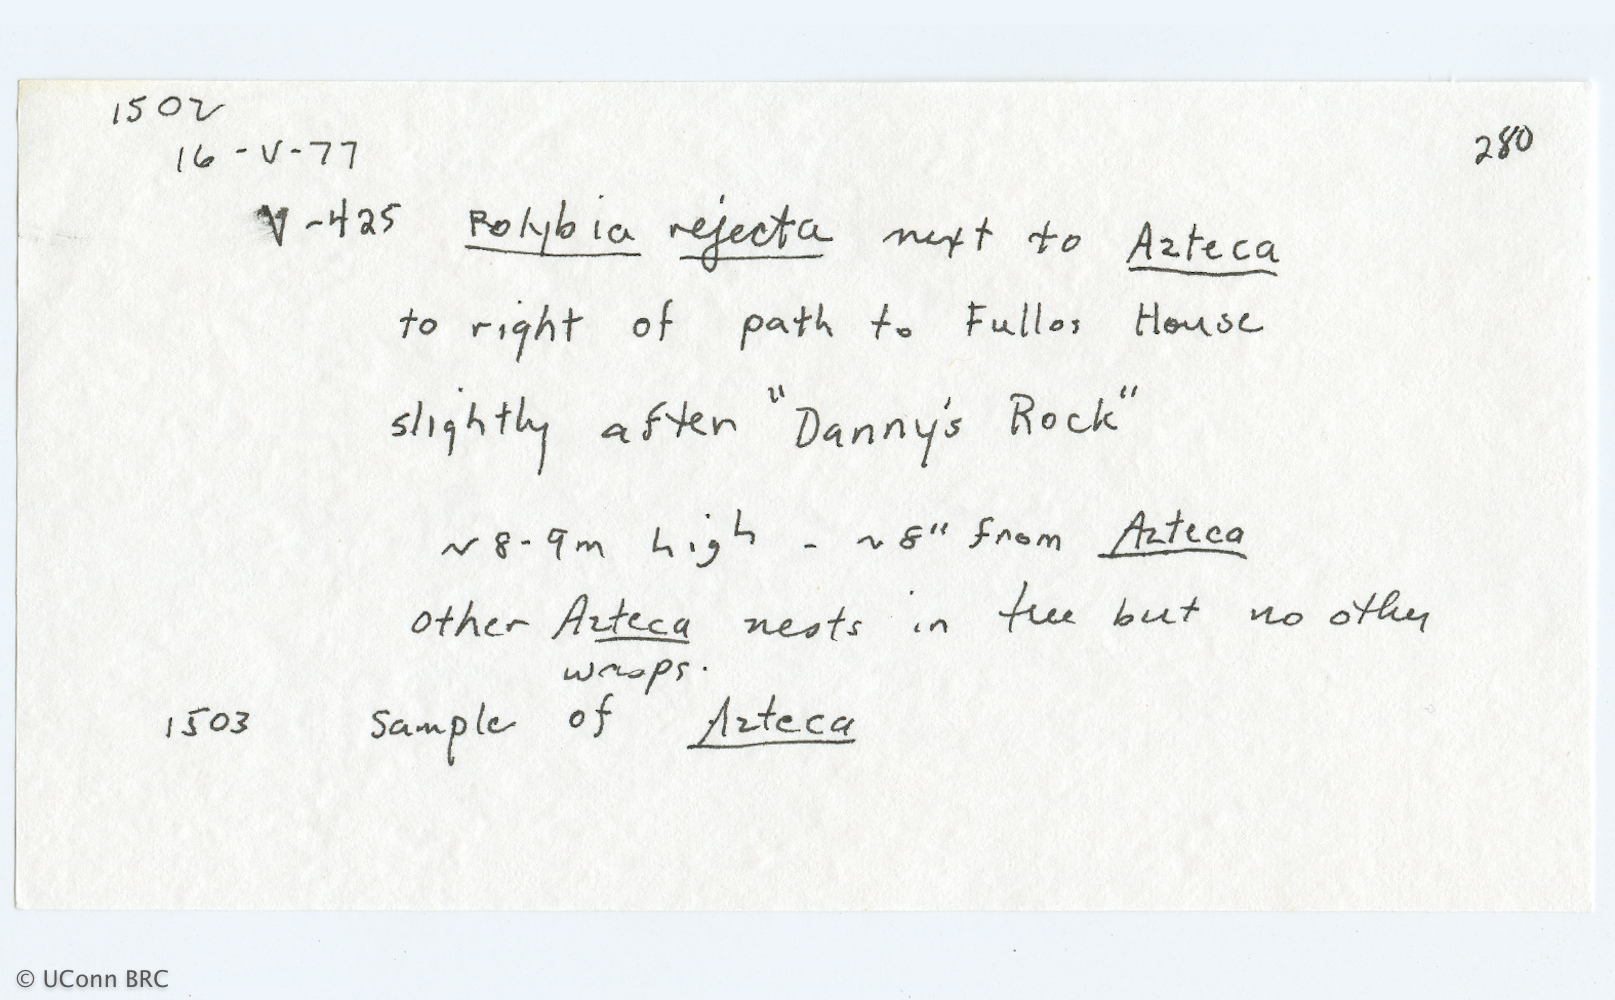 1502
280
16-V-77
V-425 Polybia rejecta next to Azteca
to right of path to Fullos House
slightly after "Danny's Rock"
~8-9m high - ~8" from Azteca
other Azteca nests in tree but no other
wasps.
1503 Sample of Azteca
© UConn BRC